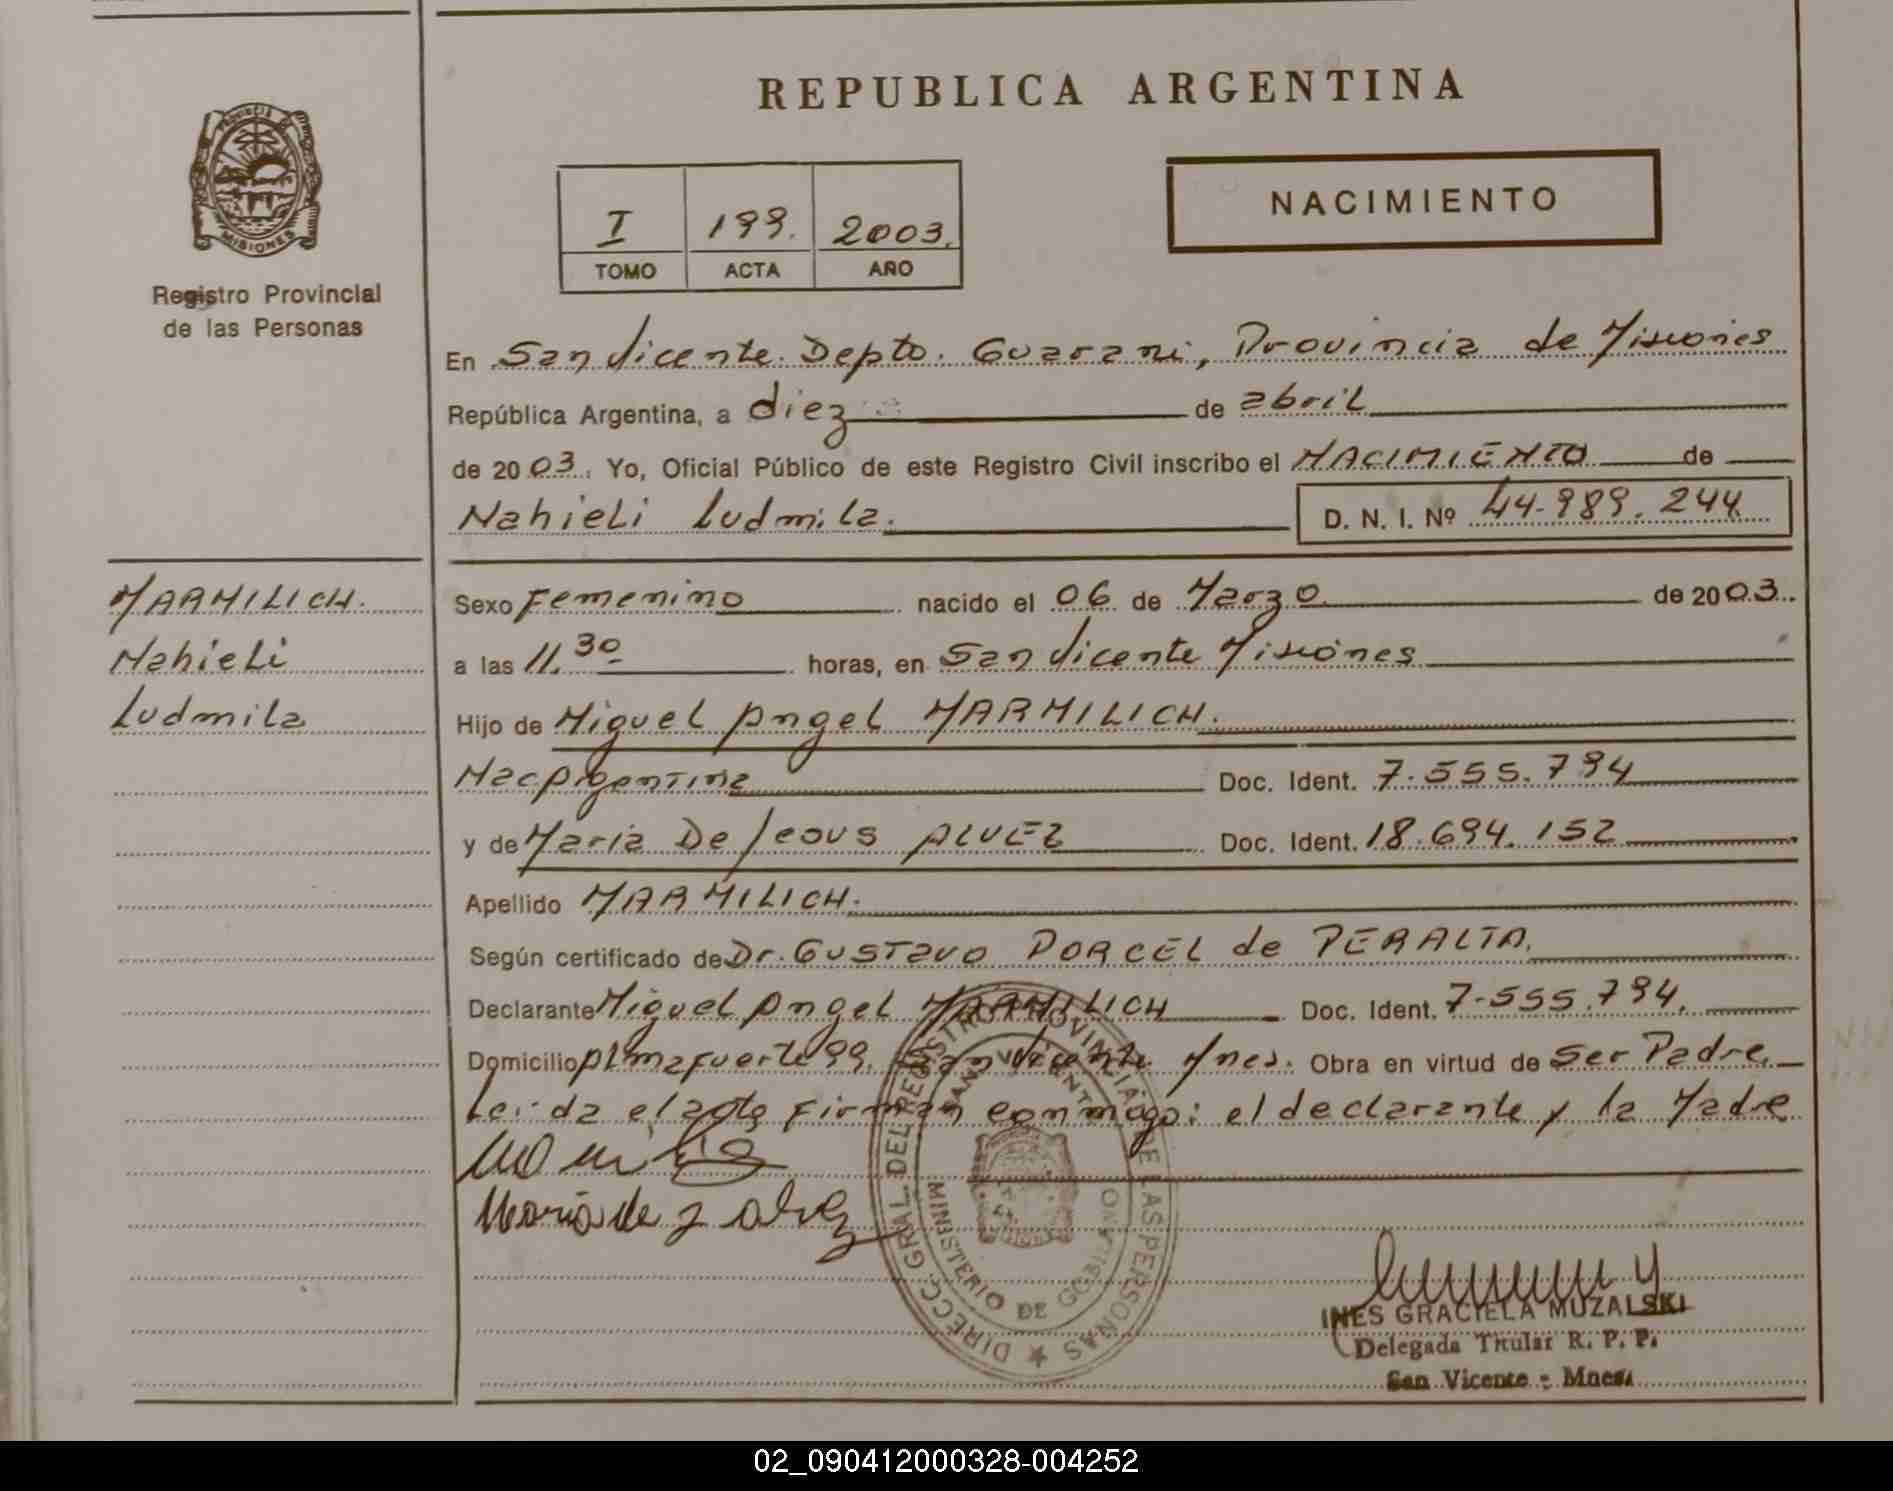 REPUBLICA ARGENTINA
PROVINCIA DE
MISIONES
Registro Provincial
de las Personas
I 199. 2003.
TOMO ACTA AÑO
NACIMIENTO
En San Vicente. Depto. Guarani, Provincia de Misiones
República Argentina, a diez de abril
de 2003. Yo, Oficial Público de este Registro Civil inscribo el NACIMIENTO de
Nahieli Ludmila. D. N. I. Nº 44.989.244
MARMILICH.
Nahieli
Ludmila
Sexo Femenino nacido el 06 de Marzo de 2003.
a las 11.30 horas, en San Vicente Misiones
Hijo de Miguel Angel MARMILICH.
Nac. Argentina Doc. Ident. 7.555.794
y de Maria De Jesus ALVEZ Doc. Ident. 18.694.152
Apellido MARMILICH.
Según certificado de Dr. Gustavo PORCEL de PERALTA.
Declarante Miguel Angel MARMILICH Doc. Ident. 7.555.794.
Domicilio Almafuerte 99. San Vicente Mnes. Obra en virtud de Ser Padre.
Leida el acta firman conmigo: el declarante y la Madre
Maria de J alvez
DIRECC. GRAL. DEL REGISTRO PROVINCIAL DE LAS PERSONAS
SAN VICENTE
MINISTERIO DE GOBIERNO
INES GRACIELA MUZALSKI
Delegada Titular R. P. P.
San Vicente - Mnes.
02_090412000328-004252